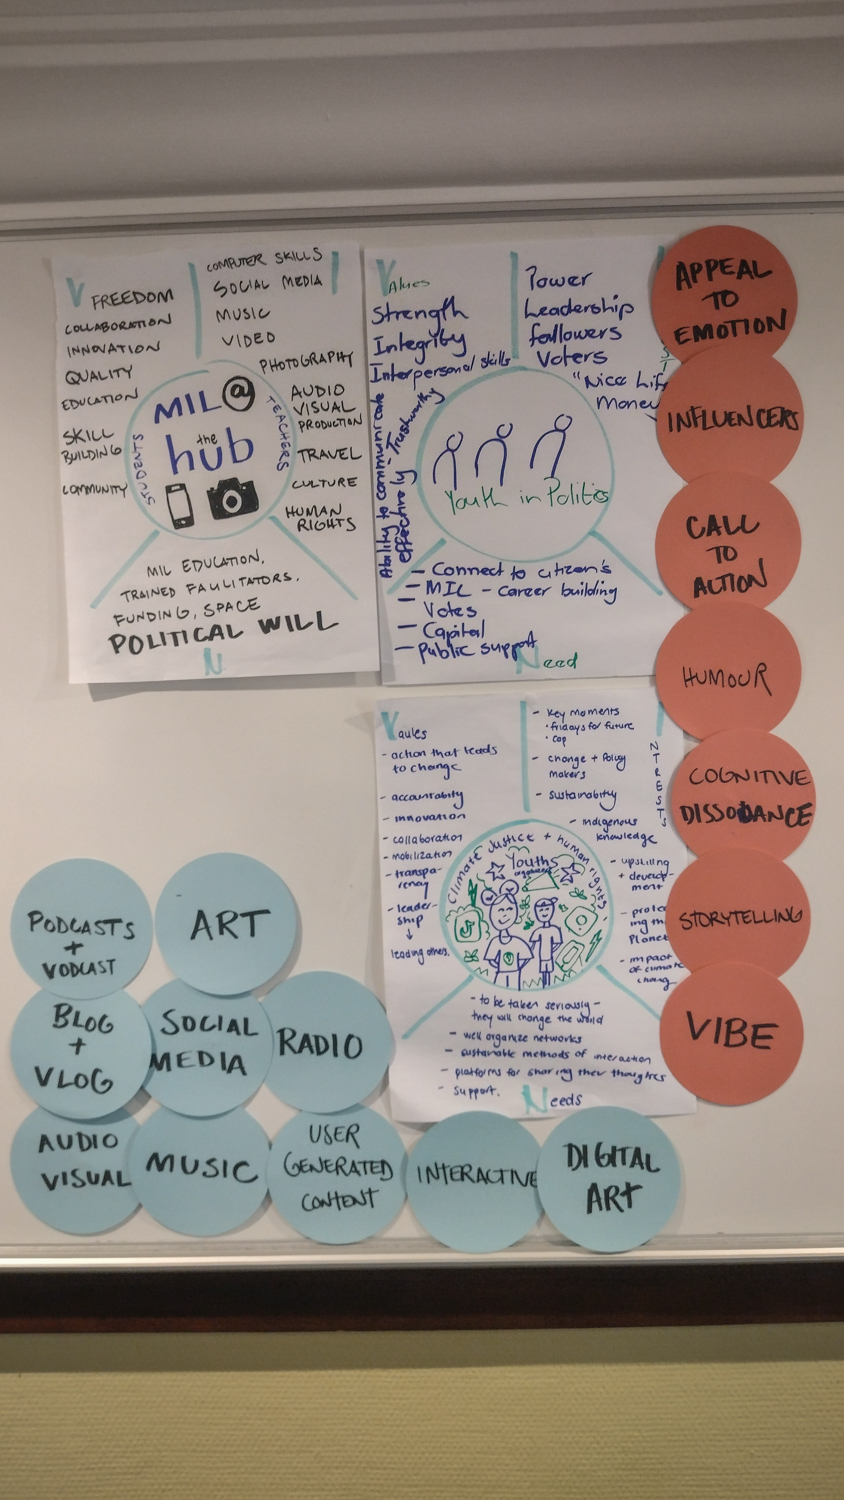 V
FREEDOM
COLLABORATION
INNOVATION
QUALITY
EDUCATION
SKILL
BUILDING
COMMUNITY
COMPUTER SKILLS
SOCIAL MEDIA
MUSIC
VIDEO
PHOTOGRAPHY
AUDIO
VISUAL
PRODUCTION
TRAVEL
CULTURE
HUMAN
RIGHTS
I
MIL@
the
hub
STUDENTS
TEACHERS
MIL EDUCATION,
TRAINED FACILITATORS,
FUNDING, SPACE
POLITICAL WILL
N
Values
Strength
Integrity
Interpersonal skills
Ability to communicate
effectively - Trustworthy
Power
Leadership
followers
Voters
"Nice Life
Money
Youth in Politics
- Connect to citizen's
- MIL - career building
- Votes
- Capital
- Public support
Need
Vaules
- action that leads
to change
- accountability
- innovation
- collaboration
- mobilization
- transpa-
rency
- leader-
ship
↓
leading others.
- Key moments
• fridays for future
• cop
- change + Policy
makers
- sustainability
- indigenous
knowledge
- upskilling
+ develop-
ment
- protec
ing the
Planet
- impact
of climate
chang
NTRESTS
Climate Justice + human rights
Youths
organizers
- to be taken seriously -
they will change the world
- well organize networks
- sustainable methods of interaction
- platforms for sharing their thoughts
- Support.
Needs
APPEAL
TO
EMOTION
INFLUENCERS
CALL
TO
ACTION
HUMOUR
COGNITIVE
DISSODANCE
STORYTELLING
VIBE
PODCASTS
+
VODCAST
ART
BLOG
+
VLOG
SOCIAL
MEDIA
RADIO
AUDIO
VISUAL
MUSIC
USER
GENERATED
CONTENT
INTERACTIVE
DIGITAL
ART